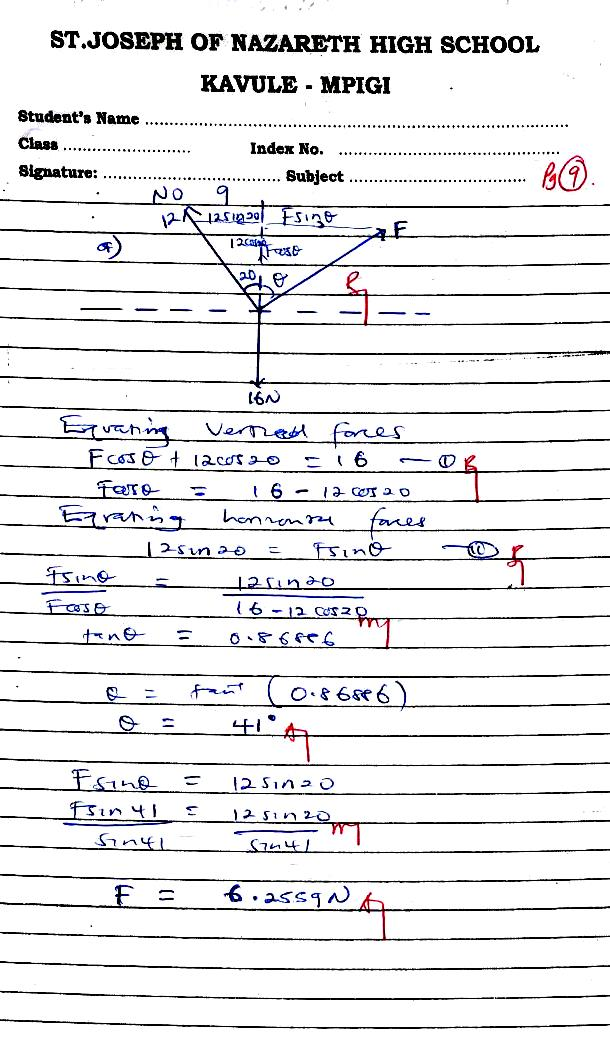 ST.JOSEPH OF NAZARETH HIGH SCHOOL
KAVULE - MPIGI
Student's Name ........................................
Class ........................ Index No. ........................................
Signature: ........................ Subject ........................ Pg 9.
NO 9
12 12sin20 Fsinθ F
a) 12cos20 Fcosθ
20 θ B1
16N
Equating Vertical forces
Fcosθ + 12cos20 = 16 — ① B1
Fcosθ = 16 - 12cos20
Equating horizontal forces
12sin20 = Fsinθ — ⑪ B1
Fsinθ = 12sin20
Fcosθ 16-12cos20 M1
tanθ = 0.86886
θ = tan⁻¹ (0.86886)
θ = 41° A1
Fsinθ = 12sin20
Fsin41 = 12sin20 M1
sin41 sin41
F = 6.2559N A1